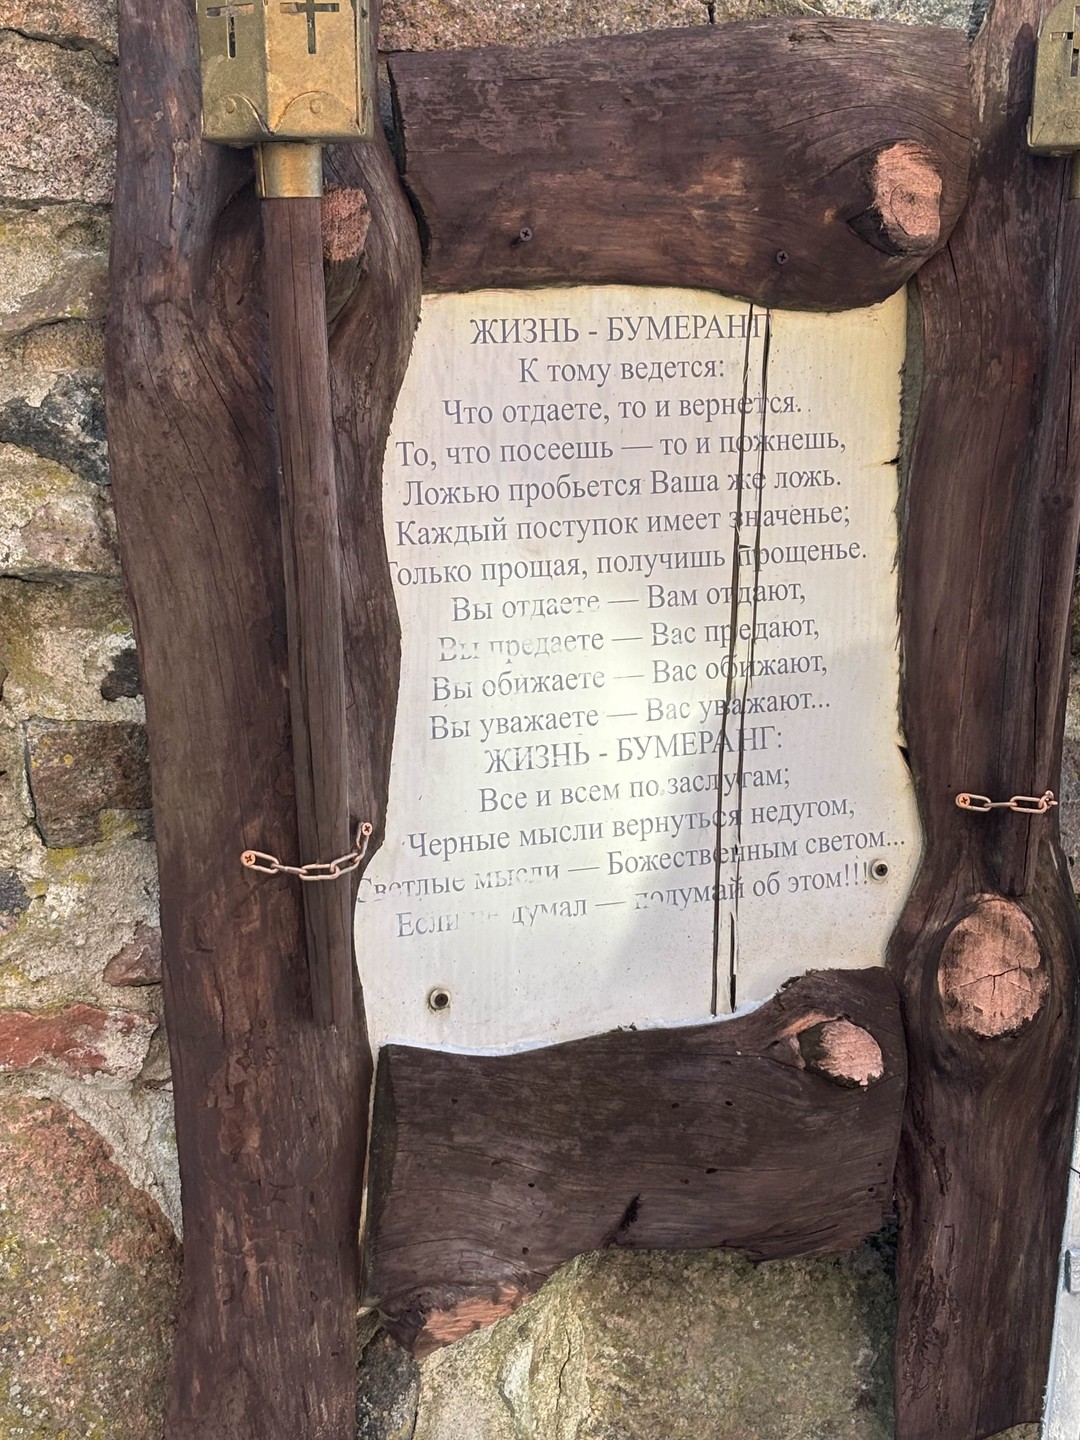 ЖИЗНЬ - БУМЕРАНГ
К тому ведется:
Что отдаете, то и вернется.
То, что посеешь — то и пожнешь,
Ложью пробьется Ваша же ложь.
Каждый поступок имеет значенье;
Только прощая, получишь прощенье.
Вы отдаете — Вам отдают,
Вы предаете — Вас предают,
Вы обижаете — Вас обижают,
Вы уважаете — Вас уважают...
ЖИЗНЬ - БУМЕРАНГ:
Все и всем по заслугам;
Черные мысли вернуться недугом,
Светлые мысли — Божественным светом...
Если не думал — подумай об этом!!!